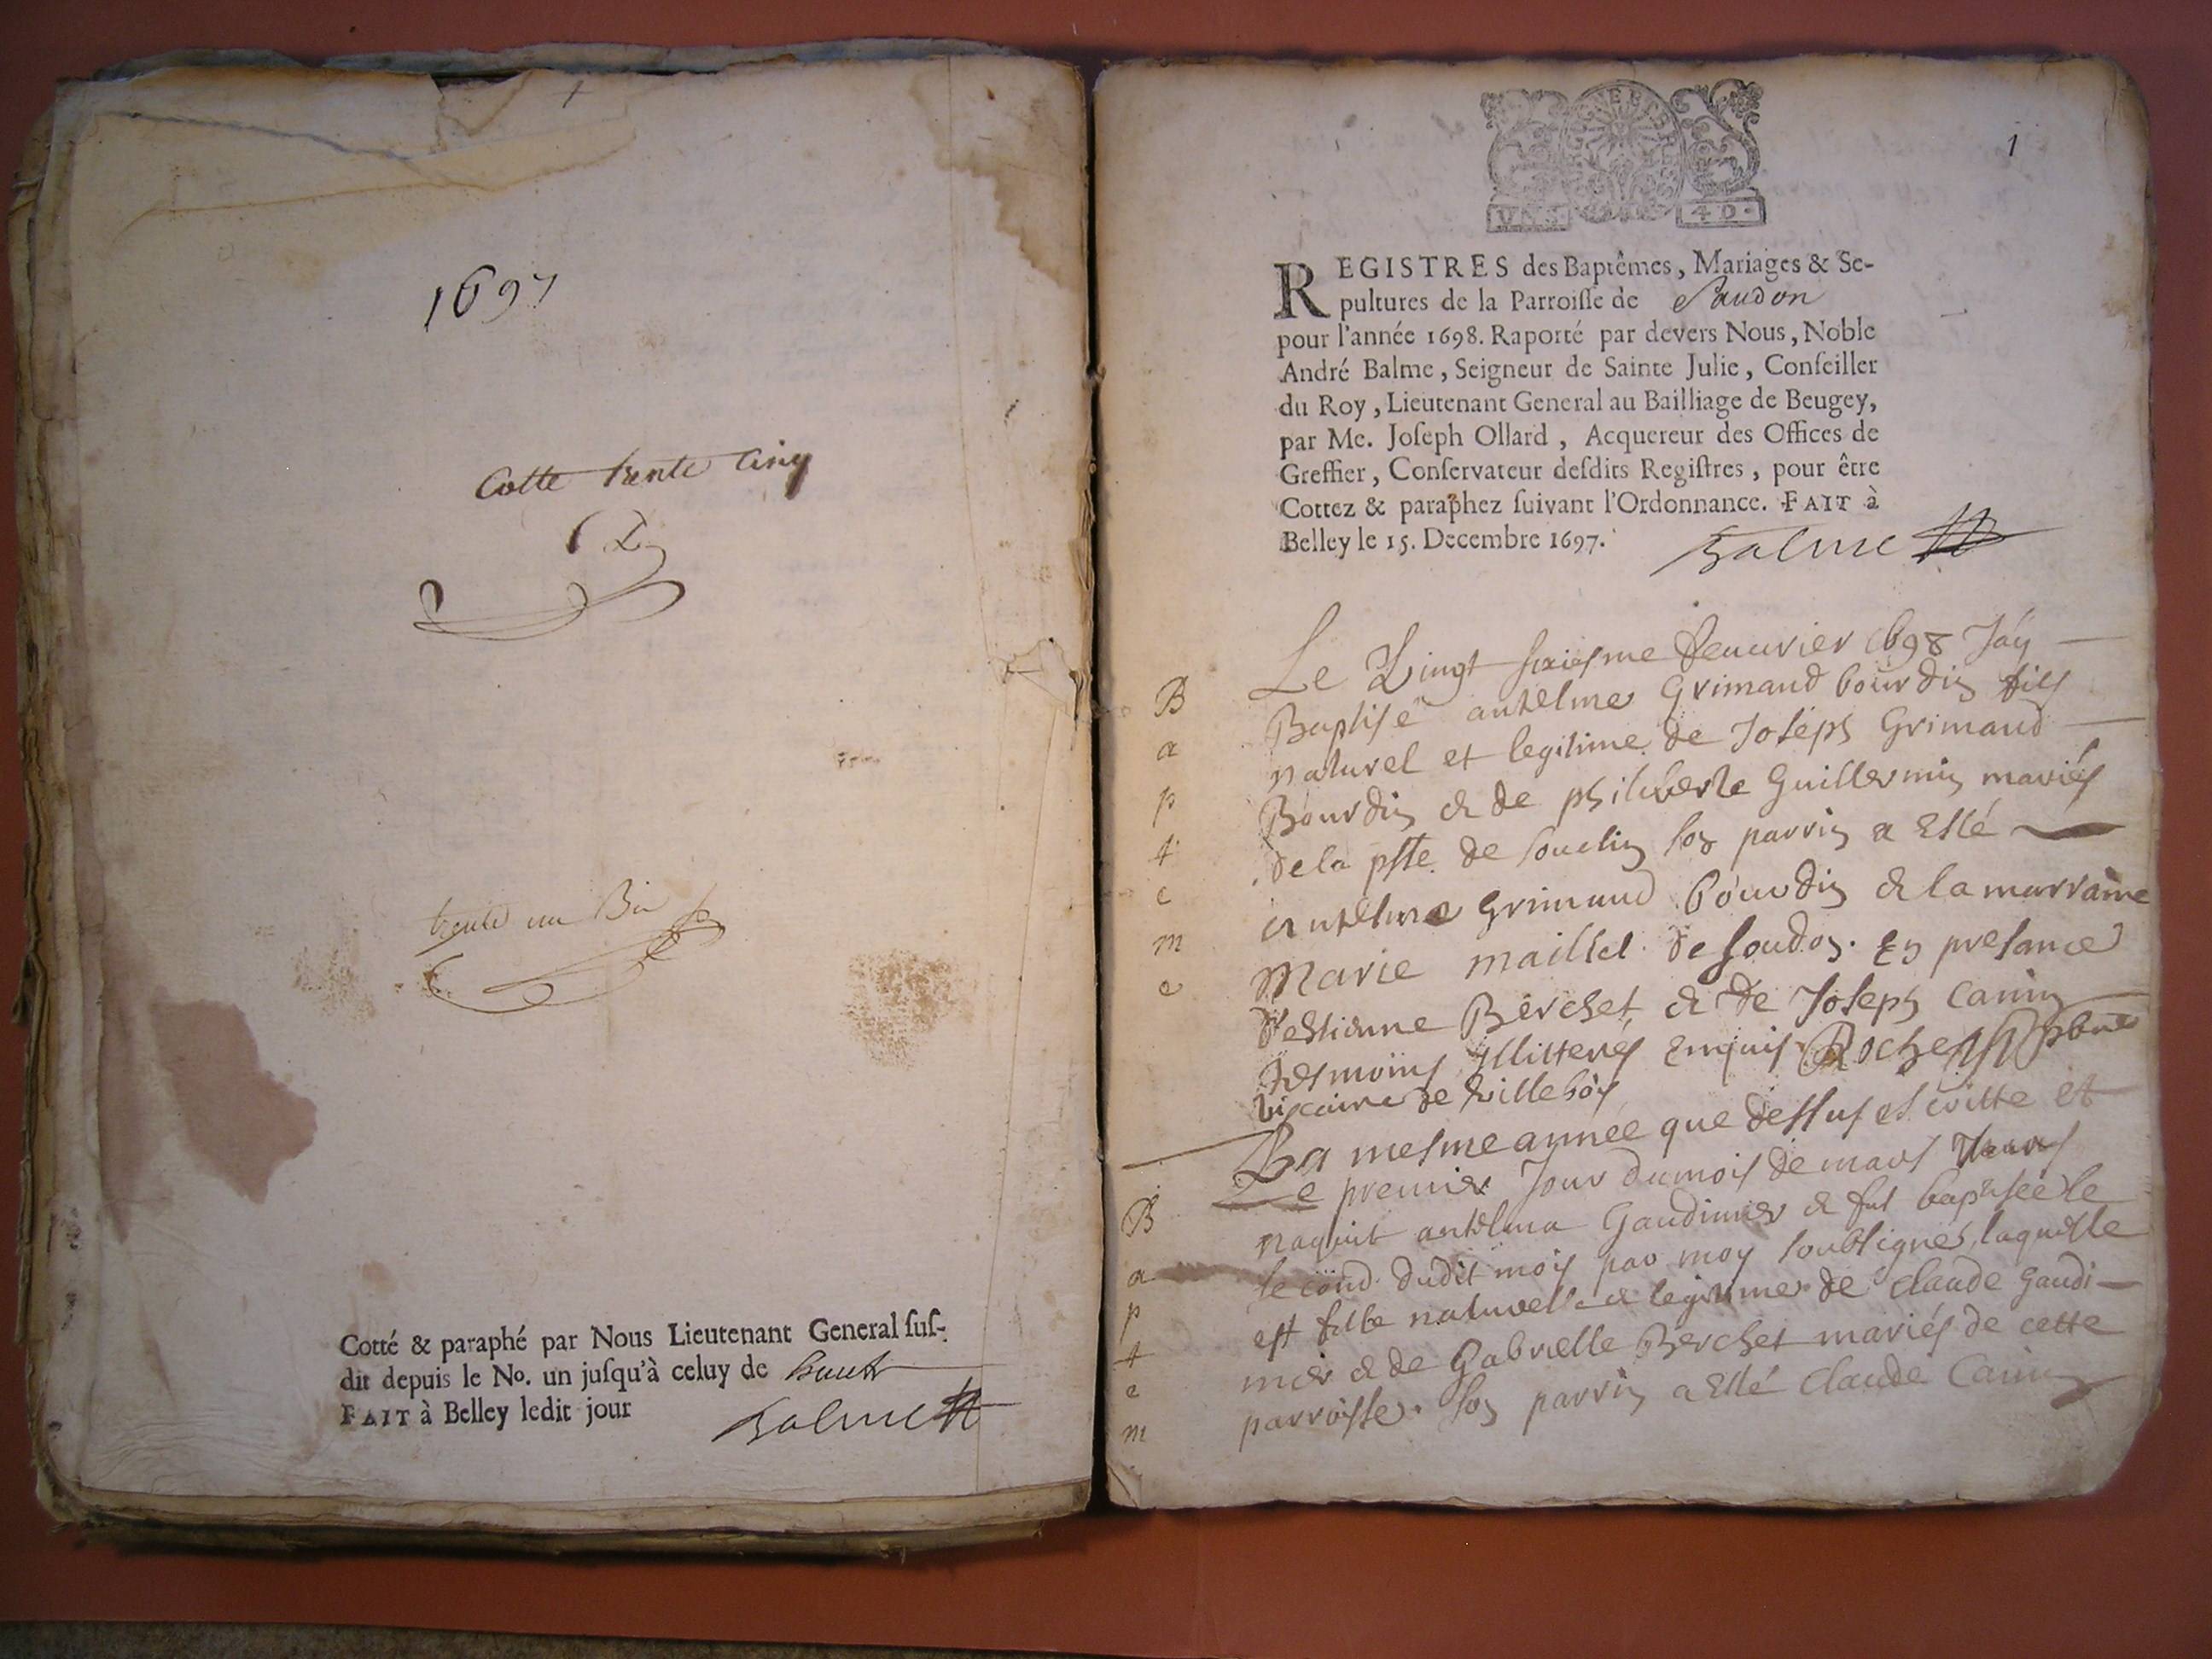 1697
Cotte trente cinq
trente un Bis
Cotté & paraphé par Nous Lieutenant General suf-
dit depuis le No. un jusqu'à celuy de huict
FAIT à Belley ledit jour
Balme
1
40.
REGISTRES des Baptêmes, Mariages & Se-
pultures de la Parroisse de Saudon
pour l'année 1698. Raporté par devers Nous, Noble
André Balme, Seigneur de Sainte Julie, Conseiller
du Roy, Lieutenant General au Bailliage de Beugey,
par Me. Joseph Ollard, Acquereur des Offices de
Greffier, Conservateur desdits Registres, pour être
Cottez & paraphez suivant l'Ordonnance. FAIT à
Belley le 15. Decembre 1697.
Balme
Bapteme
Le Vingt sixiesme Feuvrier 1698 Jáy
Baptisé antelme Grimaud bourdin fils
naturel et legitime de Joseph Grimaud
Bourdin & de philiberte Guillermin mariés
de la psse de souclin son parrin a Esté
antelme Grimaud bourdin & la marraine
Marie maillet de soudon. En presance
d'estienne Berchet & de Joseph Canin
tesmoins illitterés Enquis Roche pbre
viscaire de Villebois
La mesme année que dessus escritte et
Le premier Jour du mois de mars
Baptem
naquit antelma Gaudinier & fut baptisée le
second dudit mois par moy soubsigné, laquelle
est fille naturelle & legitime de claude Gaudi-
nier & de Gabrielle Berchet mariés de cette
parroisse. son parrin a Esté Claude Canin